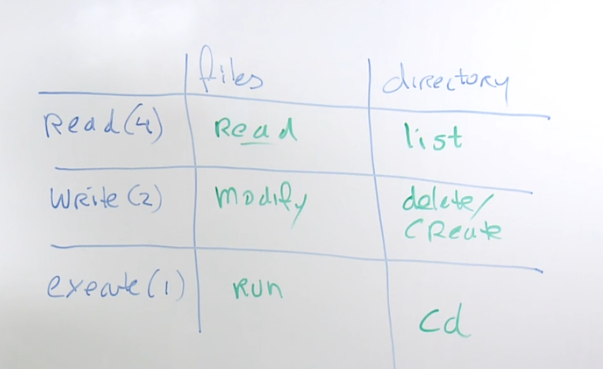 files directory
Read(4) Read list
Write(2) Modify delete/
CReate
execute(1) Run
Cd